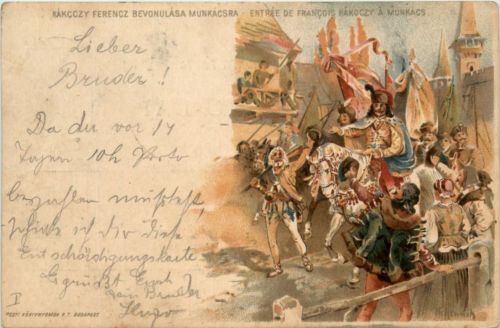 RÁKÓCZY FERENCZ BEVONULÁSA MUNKÁCSRA - ENTRÉE DE FRANÇOIS RÁKÓCZY À MUNKÁCS
Lieber
Bruder!
Da du vor 14
Tagen 10h Porto
bezahlen mußtest,
schicke ich dir diese
Entschädigungskarte
Es grüßt Euch
Bruder
Hugo
I
PESTI KÖNYVNYOMDA R.T. BUDAPEST